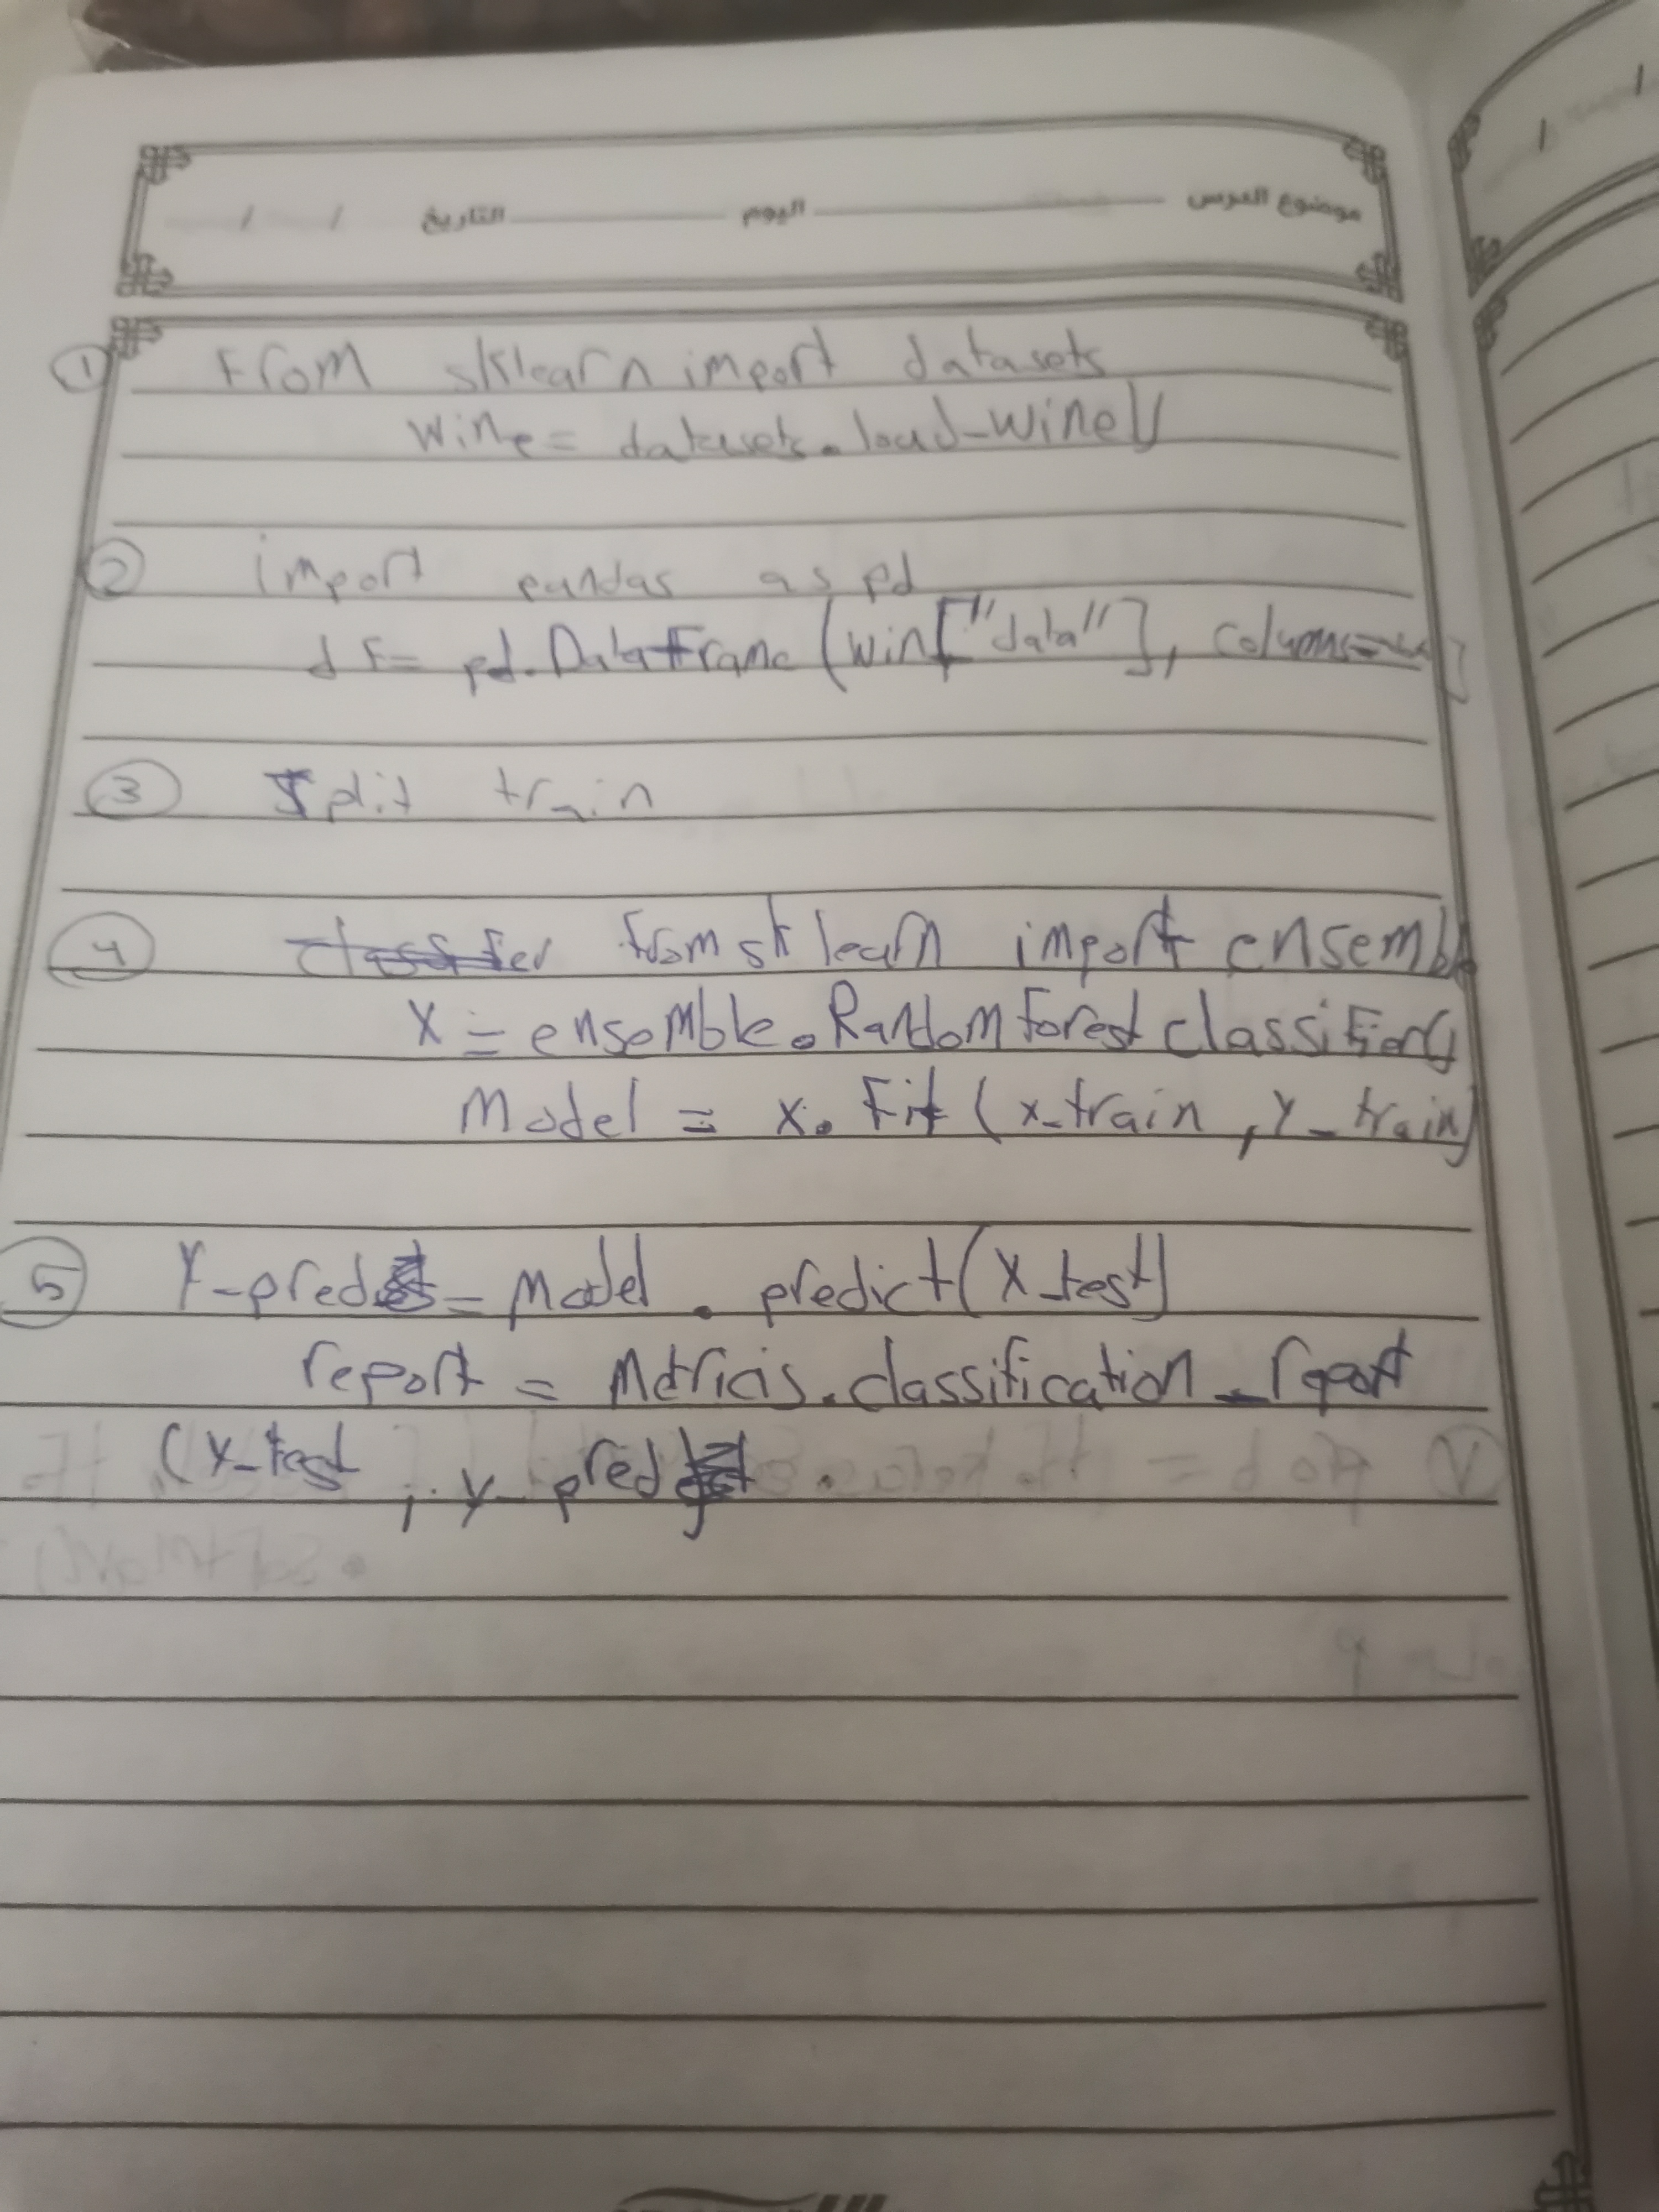 موضوع الدرس اليوم التاريخ / /
① From sklearn import datasets
Wine = datasets.load_wine()
② import pandas as pd
dF = pd.DataFrame (win["data"], columns=
③ Split train
④ from sklearn import ensemble
X = ensemble.RandomForestclassifier()
Model = x.Fit (x_train, y_train)
⑤ Y_pred = Model.predict(X_test)
report = Metricis.classification_report
(y_test, y_pred